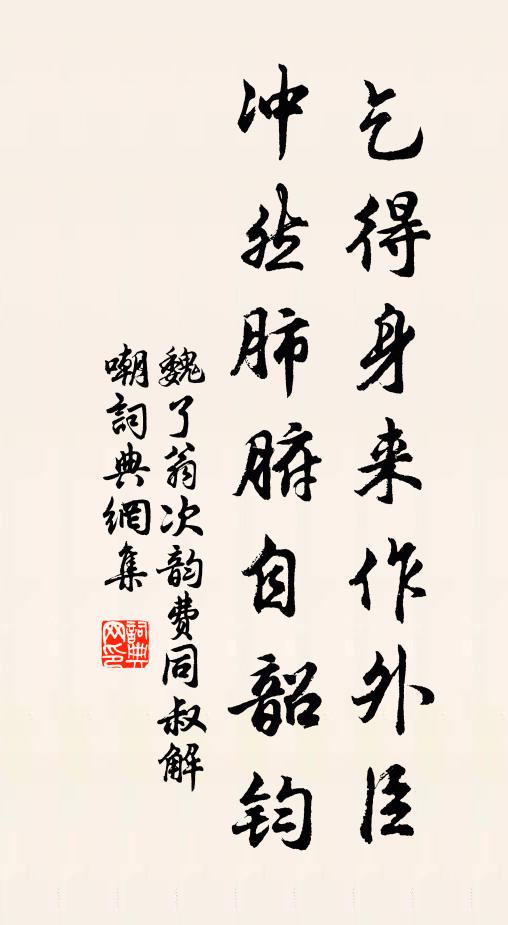 乞得身来作外臣
冲然肺腑自韶钧
魏了翁次韵费同叔解
嘲詞典網集
詞典网印